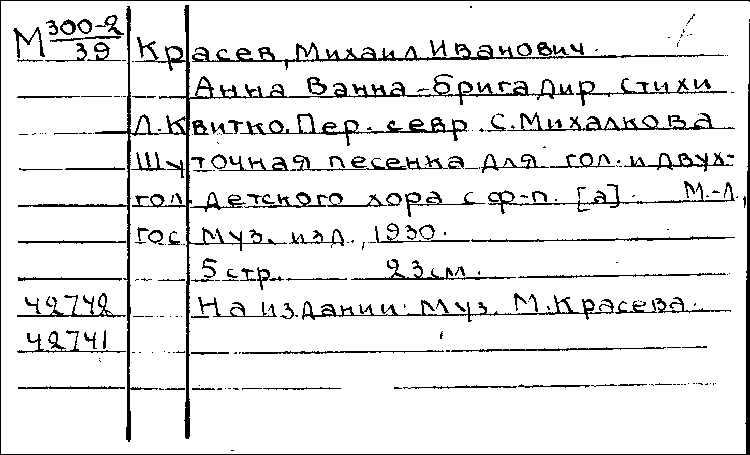 М 300-2/39 Красев, Михаил Иванович.
Анна Ванна-бригадир, стихи
Л. Квитко. Пер. с евр. С. Михалкова
Шуточная песенка для гол. и двух-
гол. детского хора с ф-п. [а]. М.-Л.,
гос муз. изд., 1930.
5 стр. 23 см.
42742 На издании: муз. М. Красева.
42741